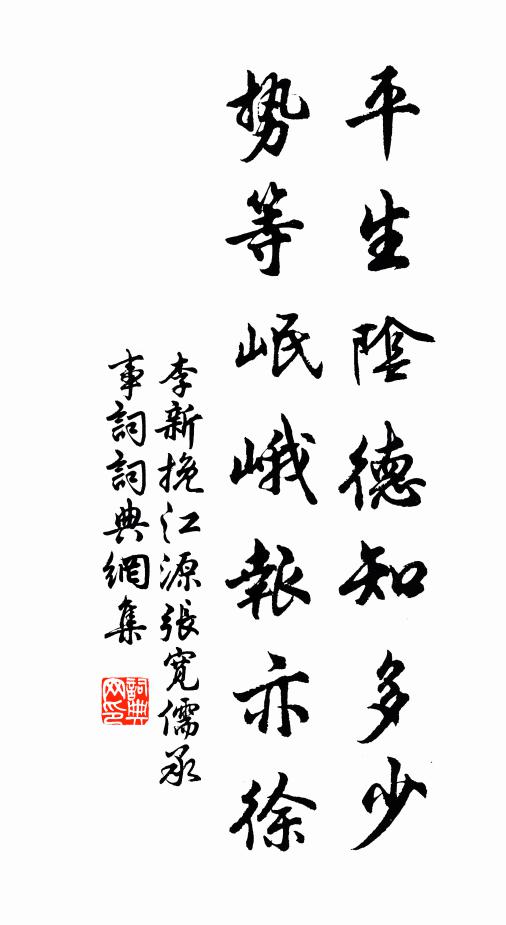 平生陰德知多少
勢等岷峨報亦徐
李新挽江源張寬儒承
事詞詞典網集
詞典
网印